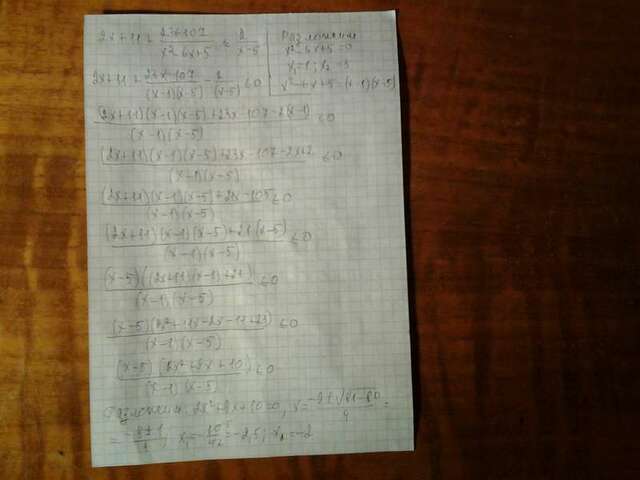 2x+11+ (23x-107)/(x²-6x+5) ≤ 2/(x-5)
Разложим
x²-6x+5=0
x₁=1; x₂=5
x²-6x+5=(x-1)(x-5)
2x+11+ (23x-107)/((x-1)(x-5)) - 2/(x-5) ≤0
((2x+11)(x-1)(x-5)+23x-107-2(x-1))/((x-1)(x-5)) ≤0
((2x+11)(x-1)(x-5)+23x-107-2x+2)/((x-1)(x-5)) ≤0
((2x+11)(x-1)(x-5)+21x-105)/((x-1)(x-5)) ≤0
((2x+11)(x-1)(x-5)+21(x-5))/((x-1)(x-5)) ≤0
((x-5)((2x+11)(x-1)+21))/((x-1)(x-5)) ≤0
((x-5)(2x²+11x-2x-11+21))/((x-1)(x-5)) ≤0
((x-5)(2x²+9x+10))/((x-1)(x-5)) ≤0
Разложим: 2x²+9x+10=0, x= (-9±√(81-80))/4 =
= (-9±1)/4; x₁=-10/4=-2,5; x₂=-2